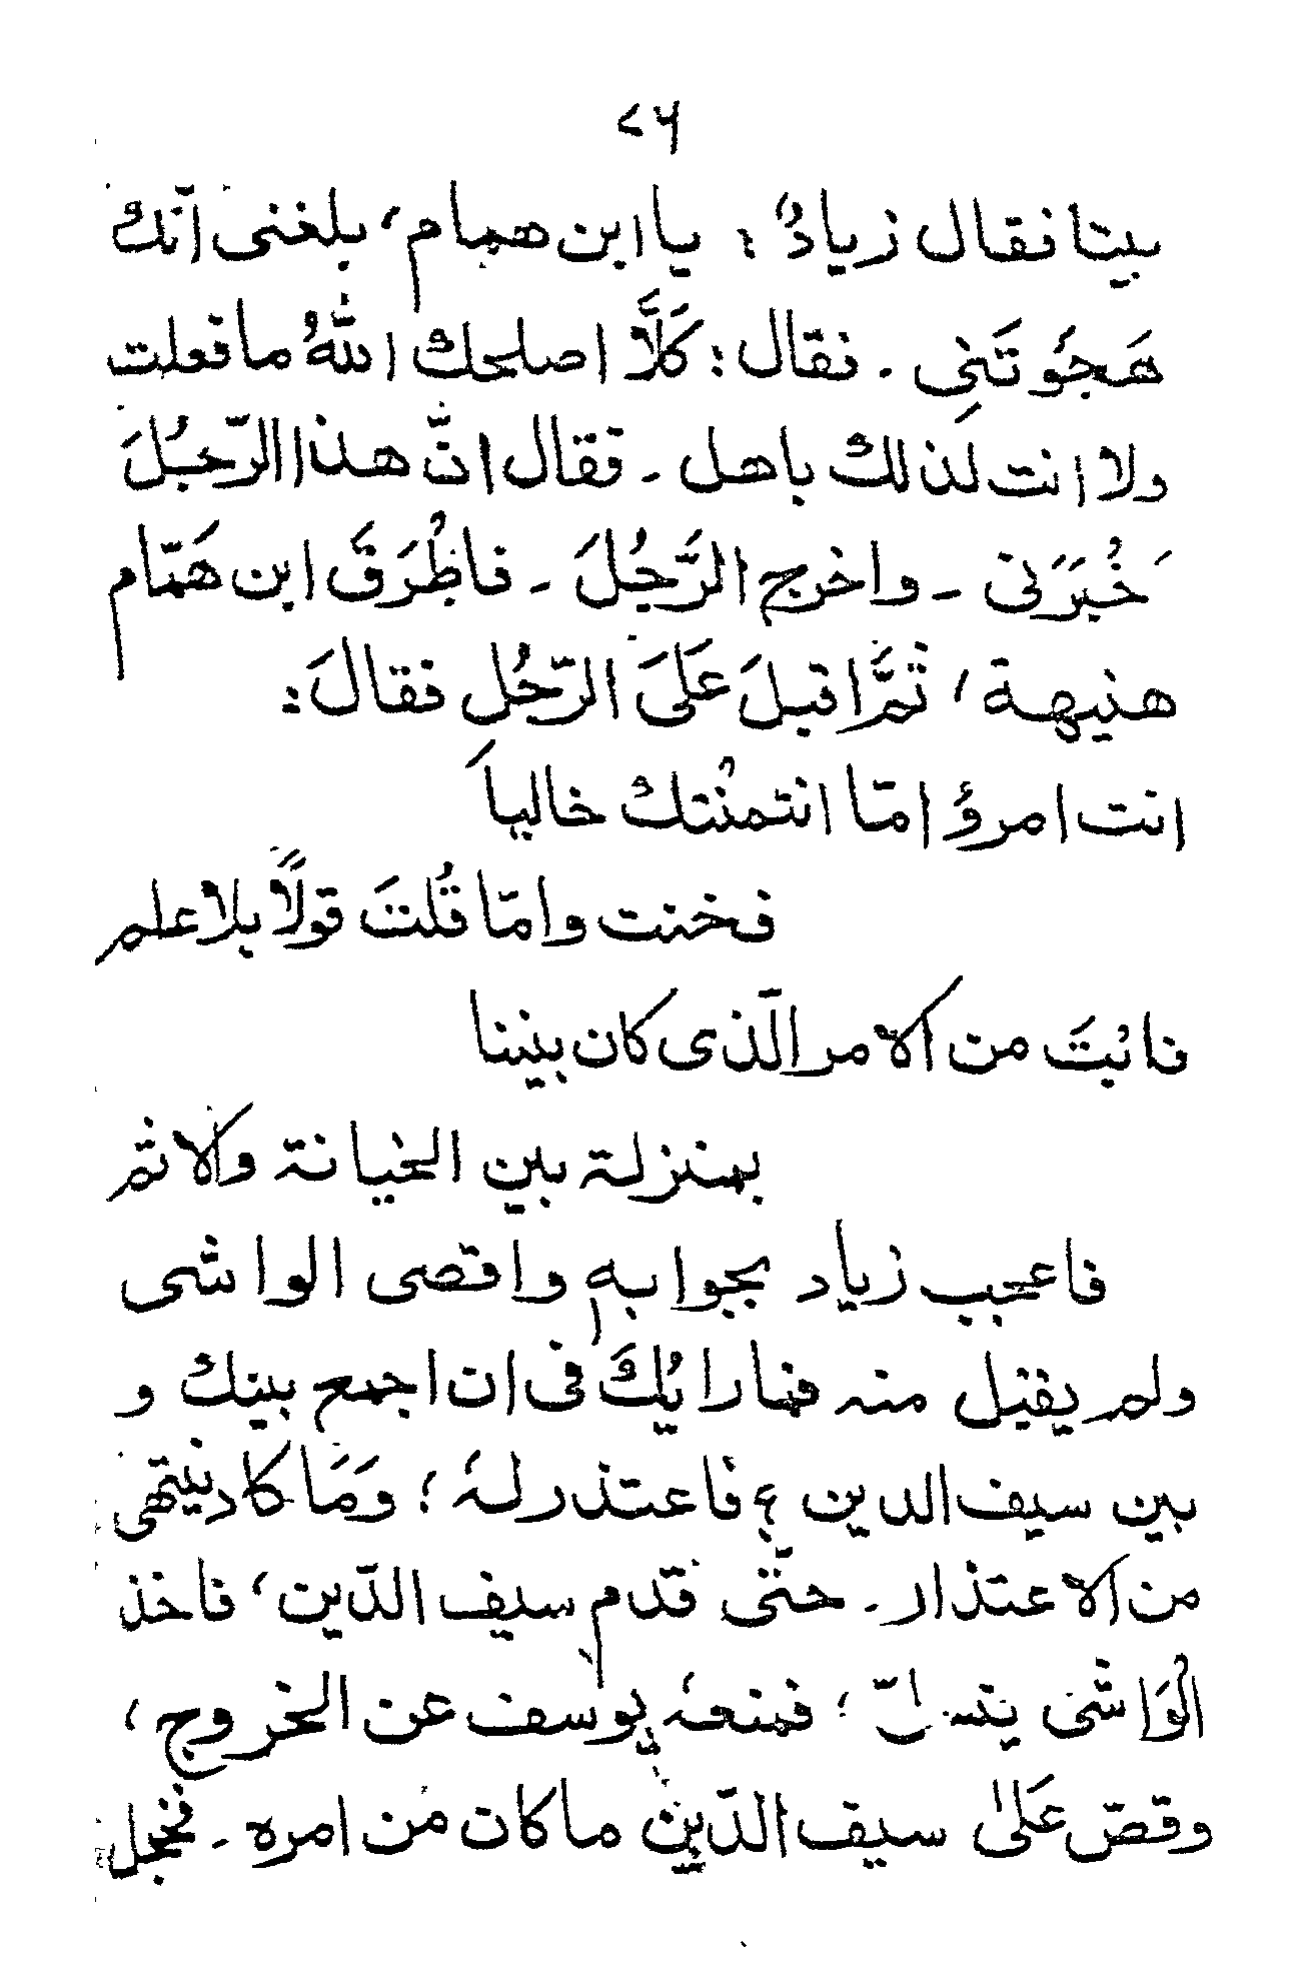 ۷۶
بيتا فقال زيادٌ : يا ابن همام، بلغنى انّك
هَجَوتَنِى ـ فقال : كَلَّا اصلحك اللّٰهُ ما فعلت
ولا انت لذلك باهل ـ فقال انّ هذا الرّجُلَ
خُبَرَنى ـ واخرج الرَّجُلَ ـ فاطْرَقَ ابن هَمّام
هنيهة، ثمَّ اقبلَ عَلَىَ الرّجُلِ فقالَ :
انت امرؤ امّا ائتمنْتك خالياً
فخنت وامّا قُلتَ قولًا بلا علم
فابُتَ من الامر الّذى كان بيننا
بمنزلة بين الخيانة والاثم
فاعجب زياد بجوابه واقصى الواشى
ولم يقبل منه فما رايُكَ فى ان اجمع بينك و
بين سيف الدين ؟ فاعتذر لهٗ ؛ وَمَا كاد ينتهى
من الاعتذار ـ حتّى قدم سيف الدّين، فاخذ
الْوَاشى يتسلّ ؛ فمنعهٗ يوسف عن الخروج،
وقصّ عَلىٰ سيف الدّين ما كان من امره ـ فخجل